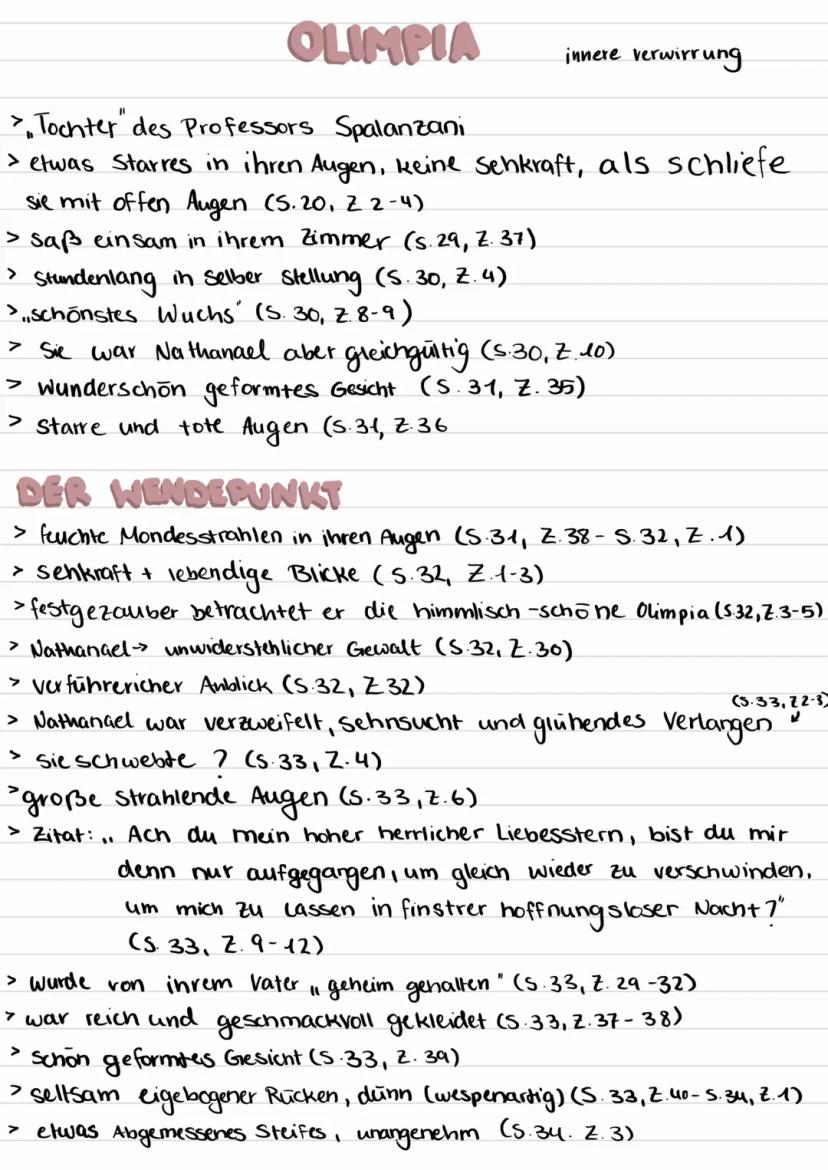 OLIMPIA
innere verwirrung
> „Tochter" des Professors Spalanzani
> etwas Starres in ihren Augen, keine Sehkraft, als schliefe
sie mit offen Augen (S. 20, Z 2-4)
> saß einsam in ihrem Zimmer (S. 29, Z. 37)
> Stundenlang in selber Stellung (S. 30, Z. 4)
> „schönstes Wuchs" (S. 30, Z. 8-9)
> Sie war Nathanael aber gleichgültig (S. 30, Z. 10)
> Wunderschön geformtes Gesicht (S. 31, Z. 35)
> Starre und tote Augen (S. 31, Z. 36
DER WENDEPUNKT
> feuchte Mondesstrahlen in ihren Augen (S. 31, Z. 38 - S. 32, Z. 1)
> Sehkraft + lebendige Blicke (S. 32, Z. 1-3)
> festgezauber betrachtet er die himmlisch-schöne Olimpia (S. 32, Z. 3-5)
> Nathanael → unwiderstehlicher Gewalt (S. 32, Z. 30)
> verführericher Anblick (S. 32, Z 32)
(S. 33, Z 2-3)
> Nathanael war verzweifelt, Sehnsucht und glühendes Verlangen ↙
> Sie schwebte ? (S. 33, Z. 4)
> große strahlende Augen (S. 33, Z. 6)
> Zitat: „ Ach du mein hoher herrlicher Liebesstern, bist du mir
denn nur aufgegangen, um gleich wieder zu verschwinden,
um mich zu lassen in finstrer hoffnungsloser Nacht?"
(S. 33, Z. 9-12)
> wurde von ihrem Vater „geheim gehalten" (S. 33, Z. 29-32)
> war reich und geschmackvoll gekleidet (S. 33, Z. 37-38)
> Schön geformtes Gesicht (S. 33, Z. 39)
> seltsam eigebogener Rücken, dünn (wespenartig) (S. 33, Z. 40 - S. 34, Z. 1)
> etwas Abgemessenes Steifes, unangenehm (S. 34. Z. 3)